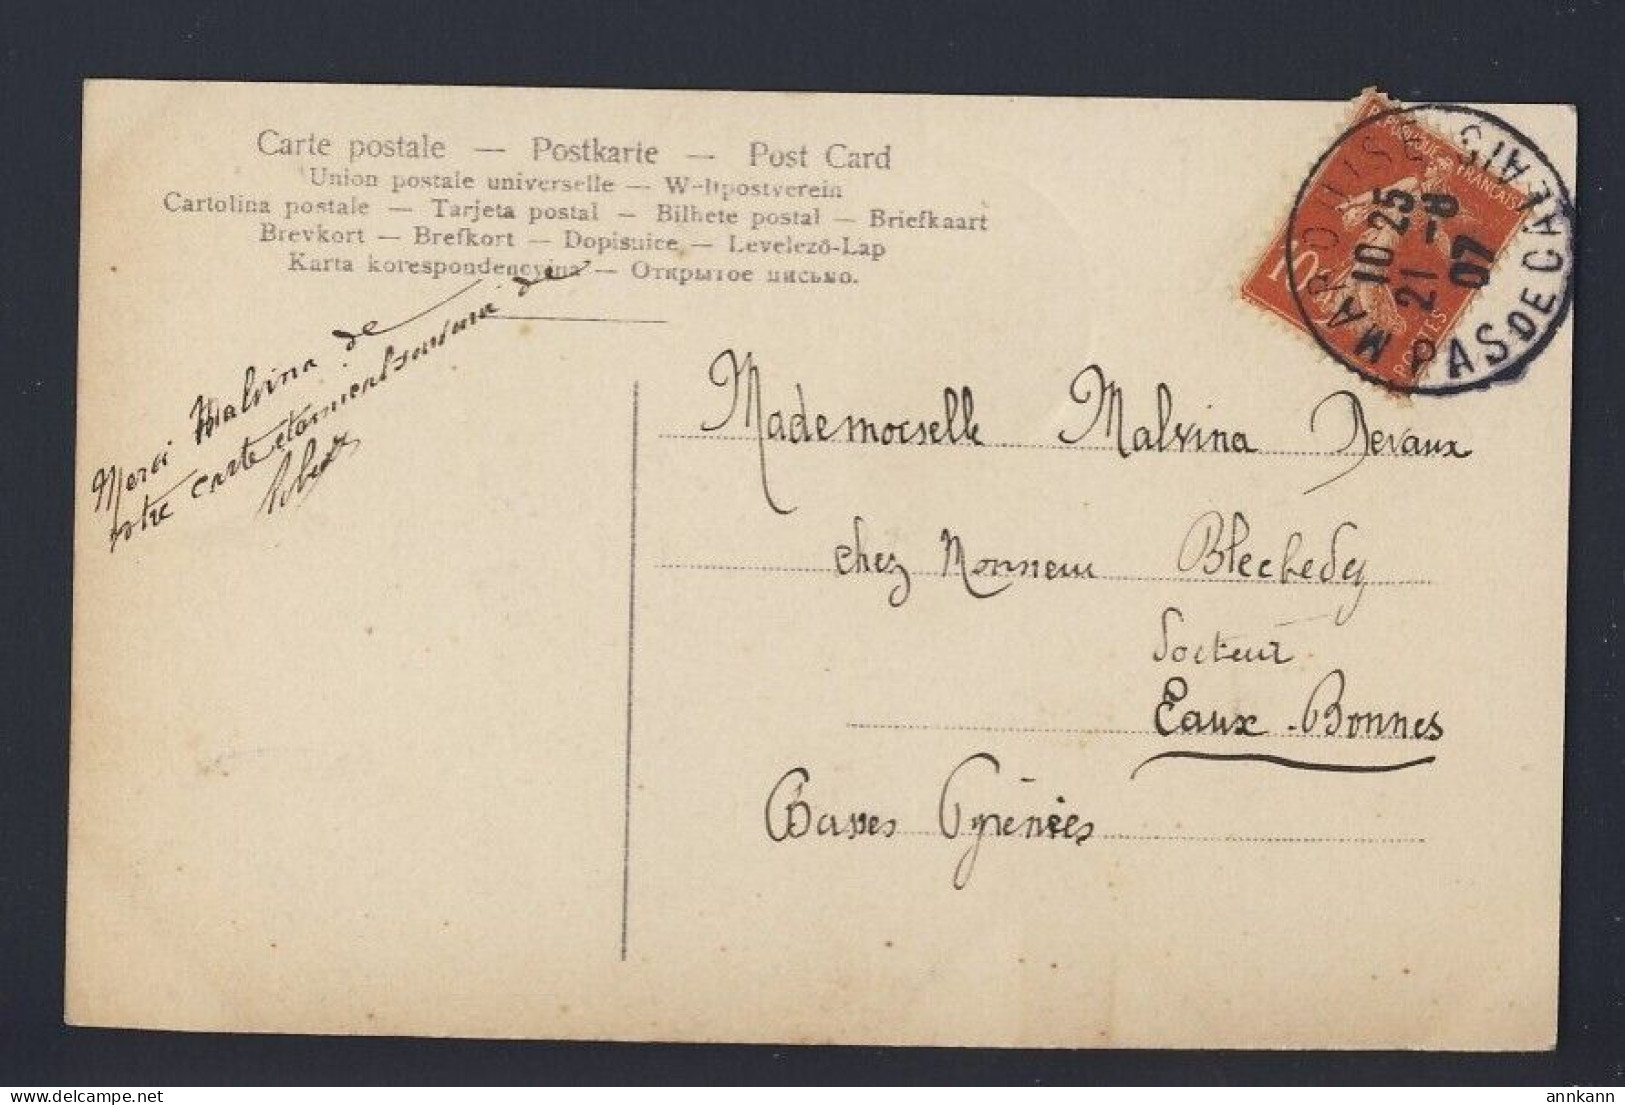 Carte postale — Postkarte — Post Card
Union postale universelle — Weltpostverein
Cartolina postale — Tarjeta postal — Bilhete postal — Briefkaart
Brevkort — Brefkort — Dopisnice — Levelező-Lap
Karta korespondencyjna — Открытое письмо.
Merci Malvina de
votre carte et amical souvenir de
REPUBLIQUE FRANÇAISE
10
POSTES
MARQUISE
PAS DE CALAIS
10 25
21 -8
07
Mademoiselle Malvina Devaux
chez Monsieur
Docteur
Eaux-Bonnes
Basses Pyrénées
delcampe.net
annkann